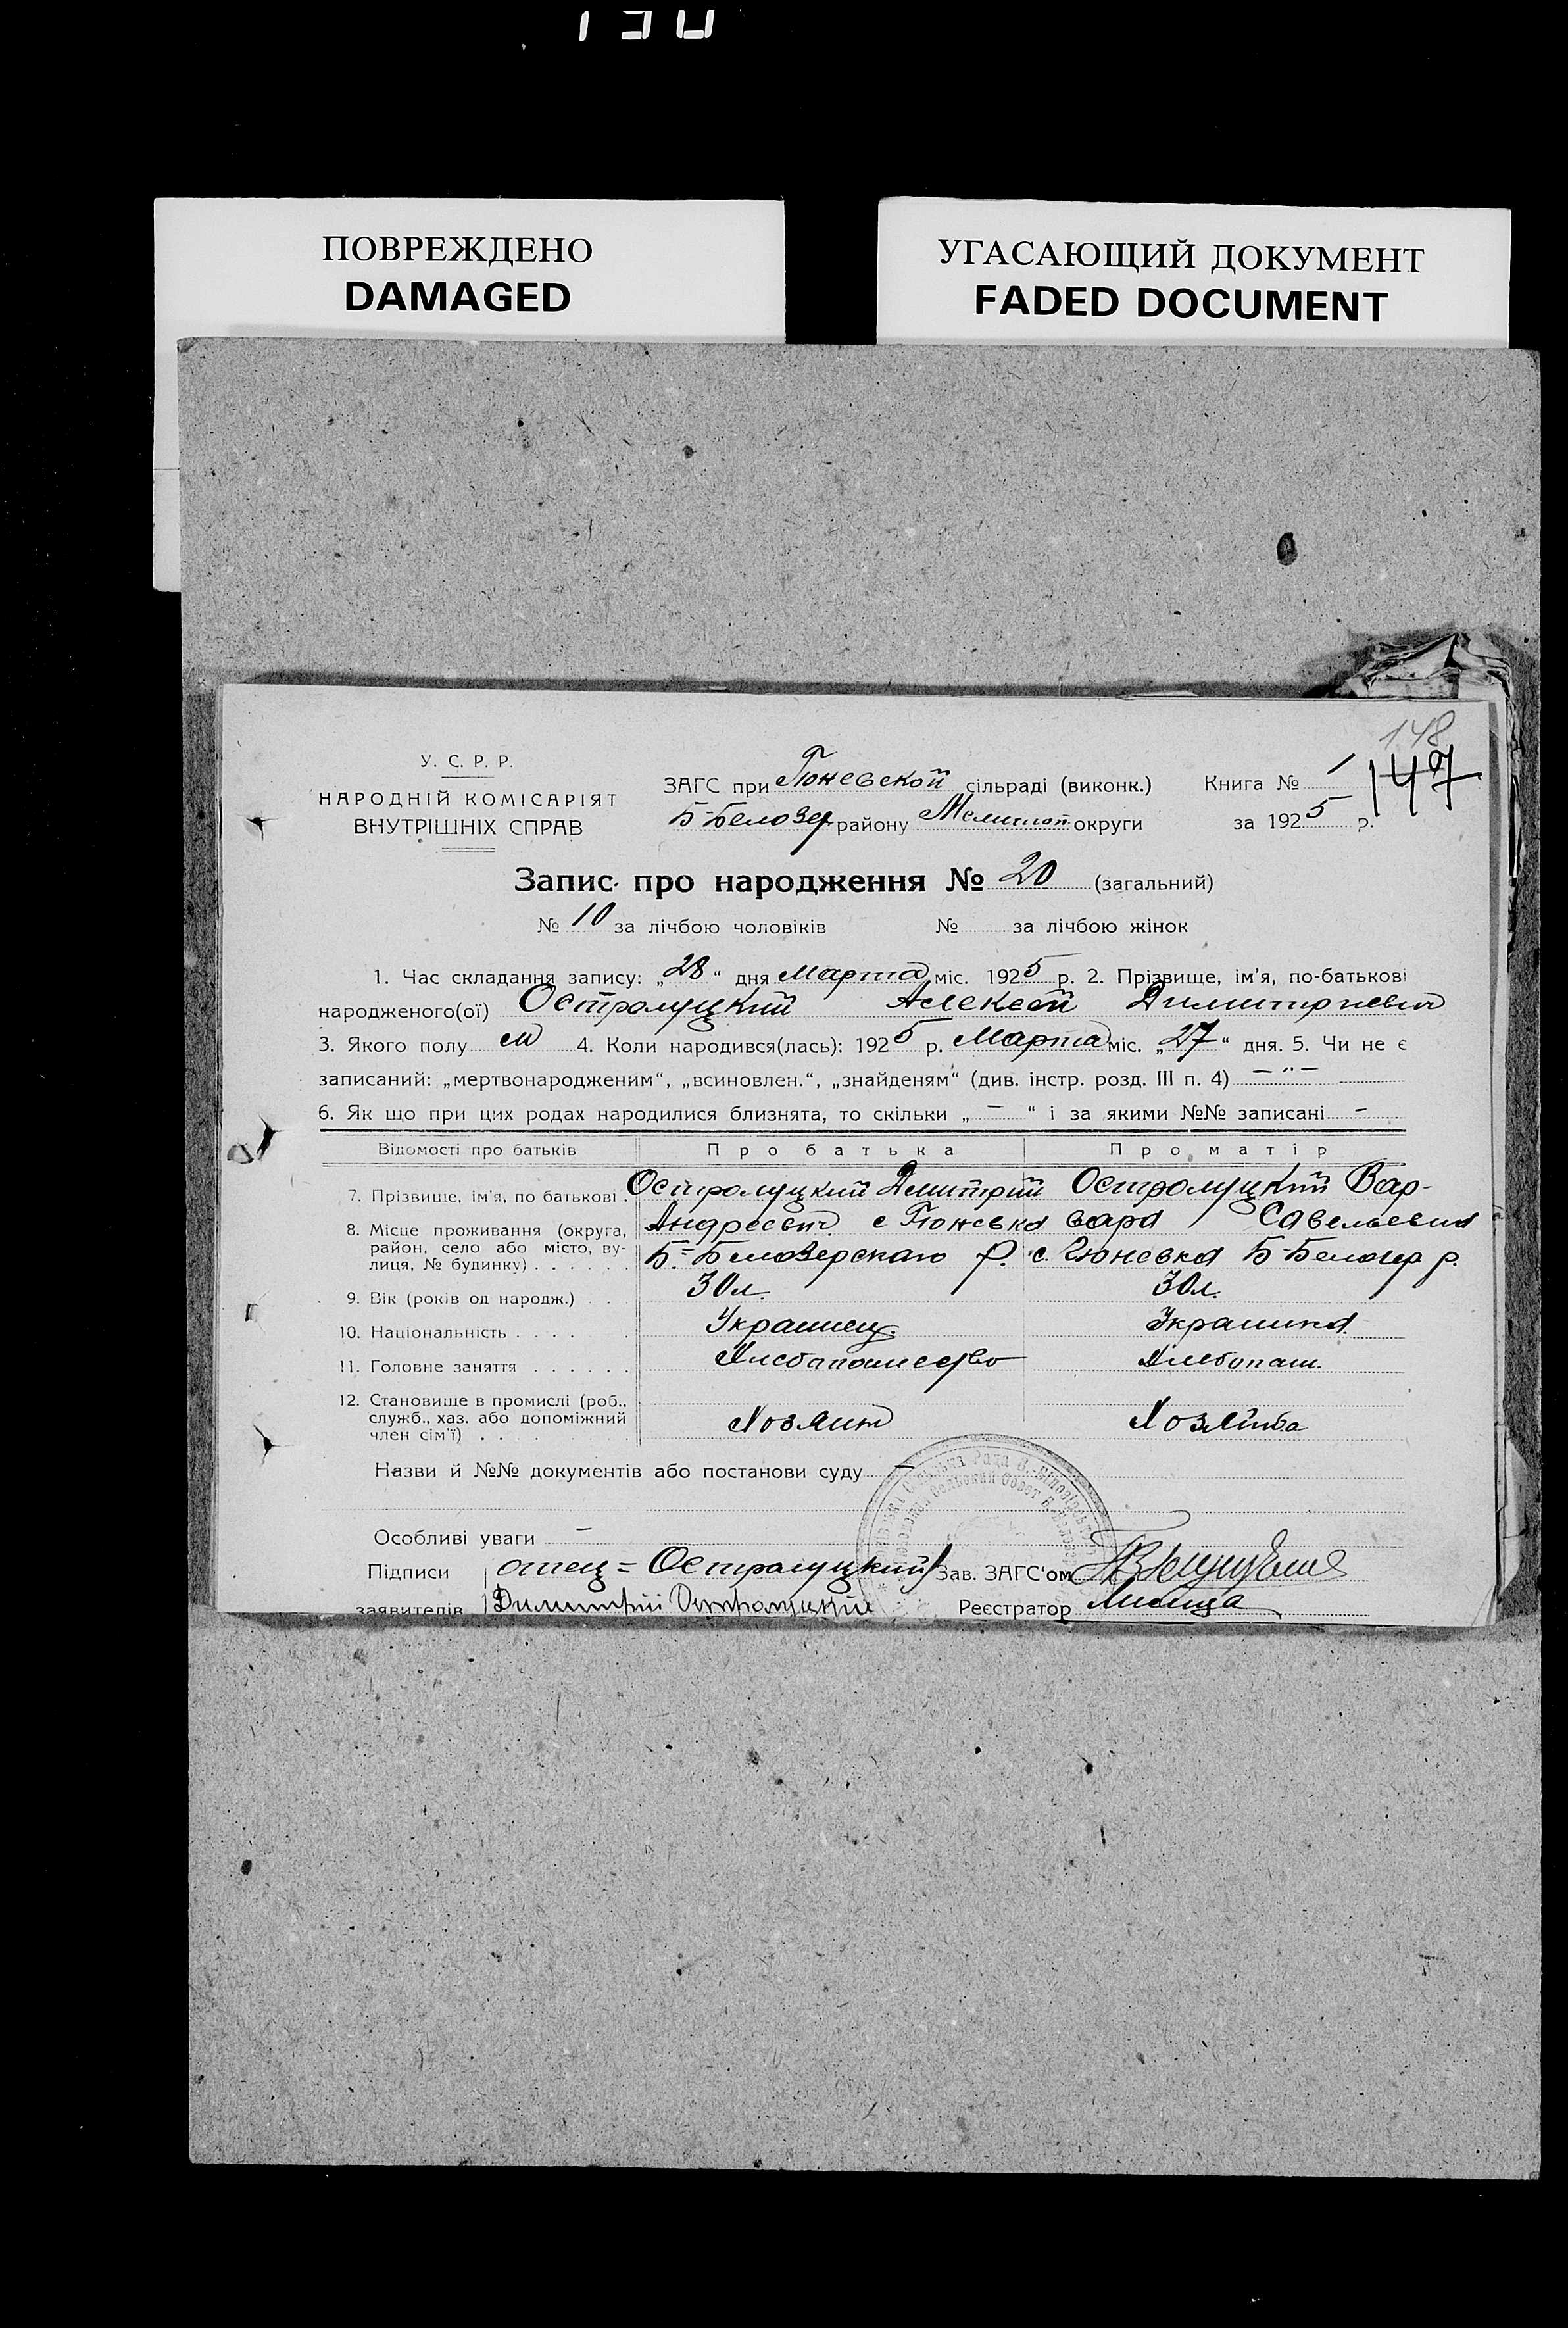 ПОВРЕЖДЕНО
DAMAGED
УГАСАЮЩИЙ ДОКУМЕНТ
FADED DOCUMENT
148
147
У. С. Р. Р.
НАРОДНІЙ КОМІСАРІЯТ
ВНУТРІШНІХ СПРАВ
ЗАГС при Гюневской сільраді (виконк.)
Б-Белозер району Мелитоп округи
Книга № 1
за 1925 р.
Запис про народження № 20 (загальний)
№ 10 за лічбою чоловіків № за лічбою жінок
1. Час складання запису: „28“ дня Марта міс. 1925 р. 2. Прізвище, ім’я, по-батькові
народженого(ої) Остролуцкий Алексей Димитриевич
3. Якого полу м 4. Коли народився(лась): 1925 р. Марта міс. „27“ дня. 5. Чи не є
записаний: „мертвонародженим“, „всиновлен.“, „знайденям“ (див. інстр. розд. III п. 4) — „ —
6. Як що при цих родах народилися близнята, то скільки „ — “ і за якими №№ записані -
Відомості про батьків Про батька Про матір
7. Прізвище, ім’я, по батькові . Остролуцкий Дмитрий Остролуцкий Вар-
8. Місце проживання (округа, Андреевич с Гюневка вара Савельевна
район, село або місто, ву- Б.-Белозерскаго р. с. Гюневка Б-Белозер р.
лиця, № будинку) . . . . . .
9. Вік (років од народж.) . . 30 л. 30 л.
10. Національність . . . . . Украинец Украинка
11. Головне заняття . . . . . . Хлебопашество Хлебопаш.
12. Становище в промислі (роб.,
служб., хаз. або допоміжний Хозяин Хозяйка
член сім’ї) . . .
Назви й №№ документів або постанови суду —
Особливі уваги —
Підписи отец = Остролуцкий Зав. ЗАГС‘ом
заявителів Димитрий Остролуцкий Реєстратор